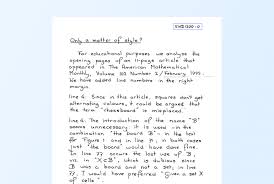 EWD1300-0
Only a matter of style?
For educational purposes we analyze the
opening pages of an 11-page article that
appeared in The American Mathematical
Monthly, Volume 102 Number 2 / February 1995.
We have added line numbers in the right
margin.
line 4. Since in this article, squares don't get
alternating colours, it could be argued that
the term "chessboard" is misplaced.
line 6. The introduction of the name "B"
seems unnecessary: it is used in the
combination "the board B" in the text
for Figure 1 and in line 7, in both cases
just "the board" would have done fine.
In line 77 occurs the last use of B,
viz. in "X⊂B", which is dubious since
B was a board and not a set; in line
77, I would have preferred "Given a set X
of cells".